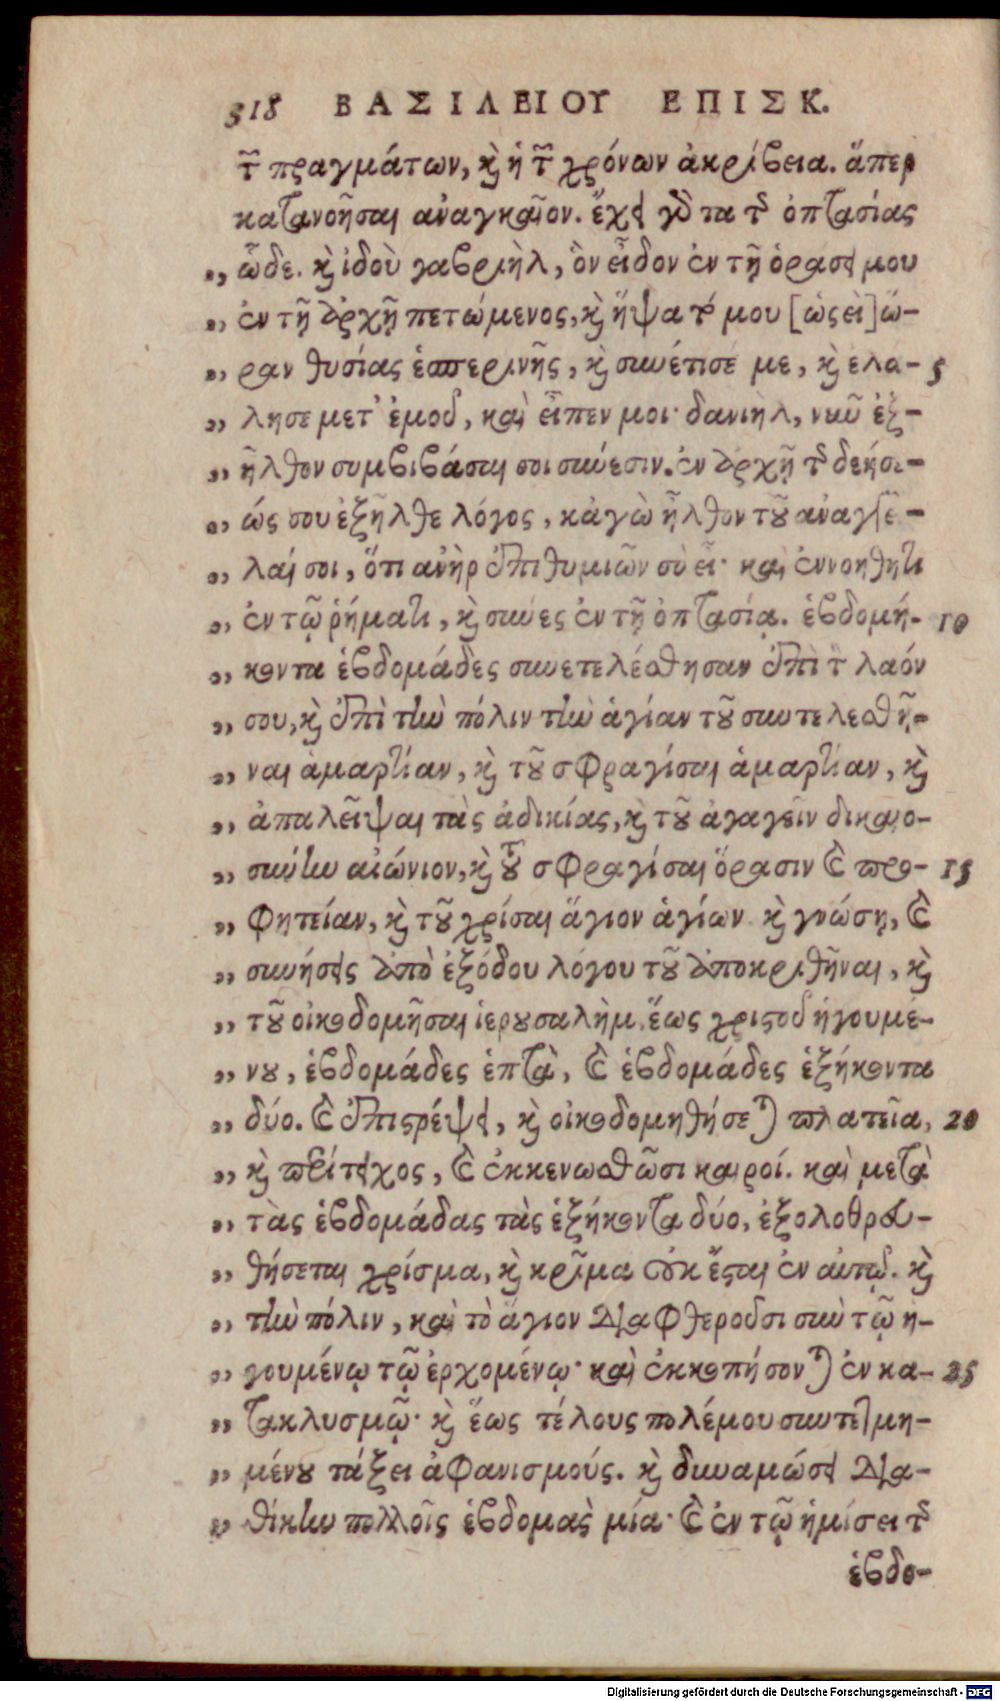 318 ΒΑΣΙΛΕΙΟΥ ΕΠΙΣΚ.
τῶν πραγμάτων, καὶ ἡ τῶν χρόνων ἀκρίβεια. ἅπερ
κατανοῆσαι ἀναγκαῖον. ἔχει γὰρ τὰ τῆς ὀπτασίας
„ ὧδε. καὶ ἰδοὺ γαβριὴλ, ὃν εἶδον ἐν τῇ ὁράσει μου
„ ἐν τῇ ἀρχῇ πετώμενος, καὶ ἥψατό μου [ὡςεὶ] ὥ-
„ ραν θυσίας ἑσπερινῆς, καὶ συνέτισέ με, καὶ ελα- 5
„ λησε μετ' ἐμοῦ, καὶ εἶπεν μοι· δανιὴλ, νῦν ἐξ-
„ ῆλθον συμβιβάσαι σοι σύνεσιν. ἐν ἀρχῇ τῆς δεήσε-
„ ώς σου ἐξῆλθε λόγος, κἀγὼ ἦλθον τοῦ ἀναγγεῖ-
„ λαί σοι, ὅτι ἀνὴρ ἐπιθυμιῶν σὺ εἶ· καὶ ἐννοηθητι
„ ἐν τῷ ῥήματι, καὶ σύνες ἐν τῇ ὀπτασίᾳ. ἑβδομή- 10
„ κοντα ἑβδομάδες συνετελέσθησαν ἐπὶ τὸν λαόν
„ σου, καὶ ἐπὶ τὴν πόλιν τὴν ἁγίαν τοῦ συντελεσθῆ-
„ ναι ἁμαρτίαν, καὶ τοῦ σφραγίσαι ἁμαρτίαν, καὶ
„ ἀπαλεῖψαι τὰς ἀδικίας, καὶ τοῦ ἀγαγεῖν δικαιο-
„ σύνην αἰώνιον, καὶ τοῦ σφραγίσαι ὅρασιν καὶ προ- 15
„ φητείαν, καὶ τοῦ χρίσαι ἅγιον ἁγίων καὶ γνώσῃ, καὶ
„ συνήσεις ἀπὸ ἐξόδου λόγου τοῦ ἀποκριθῆναι, καὶ
„ τοῦ οἰκοδομῆσαι ἱερουσαλὴμ, ἕως χριστοῦ ἡγουμέ-
„ νου, ἑβδομάδες ἑπτὰ, καὶ ἑβδομάδες ἑξήκοντα
„ δύο. καὶ ἐπιστρέψει, καὶ οἰκοδομηθήσεται πλατεῖα, 20
„ καὶ περίτειχος, καὶ ἐκκενωθῶσι καιροί. καὶ μετὰ
„ τὰς ἑβδομάδας τὰς ἑξήκοντα δύο, ἐξολοθρευ-
„ θήσεται χρίσμα, καὶ κρῖμα οὐκ ἔσται ἐν αὐτῷ. καὶ
„ τὴν πόλιν, καὶ τὸ ἅγιον διαφθεροῦσι σὺν τῷ ἡ-
„ γουμένῳ τῷ ἐρχομένῳ· καὶ ἐκκοπήσονται ἐν κα- 25
„ τακλυσμῷ· καὶ ἕως τέλους πολέμου συντετμη-
„ μένου τάξει ἀφανισμούς. καὶ δυναμώσει δια-
„ θήκην πολλοῖς ἑβδομὰς μία· καὶ ἐν τῷ ἡμίσει τῆς
ἑβδο-
Digitalisierung gefördert durch die Deutsche Forschungsgemeinschaft - DFG